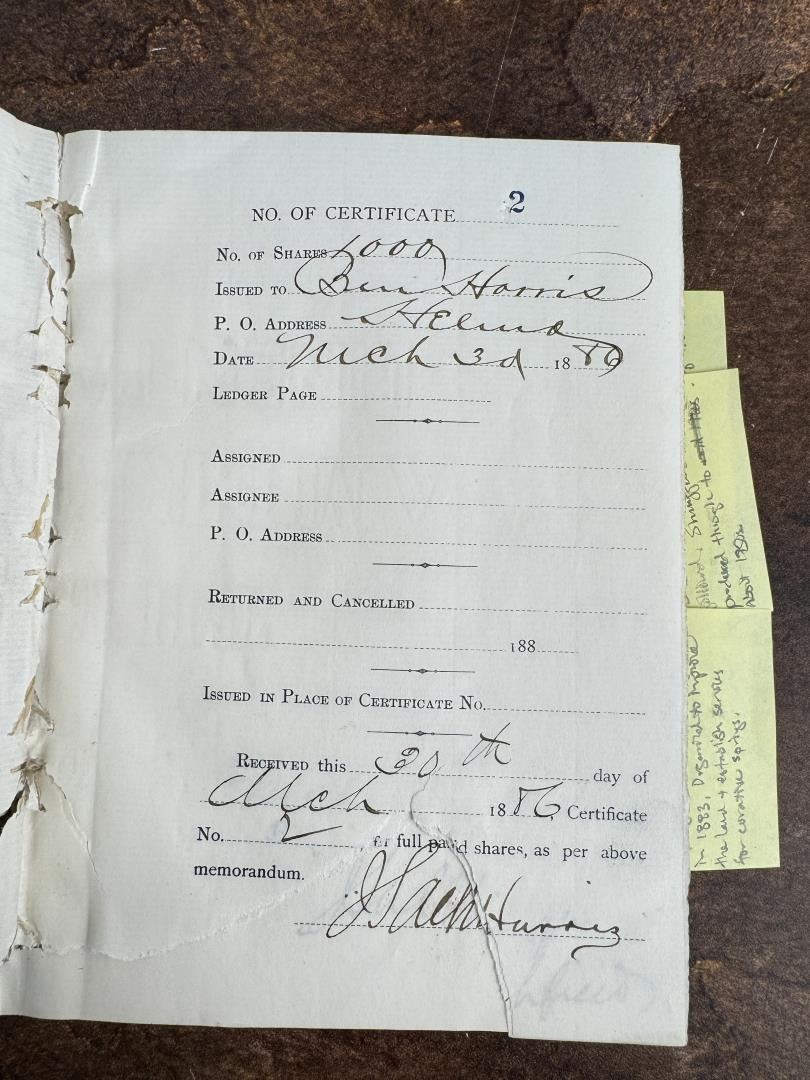 NO. OF CERTIFICATE 2
No. of Shares 1000
Issued to Ben Harris
P. O. Address Helena
Date Mch 30 1886
Ledger Page
Assigned
Assignee
P. O. Address
Returned and Cancelled
188
Issued in Place of Certificate No.
Received this 30th day of
Mch 1886, Certificate
No. 2, for full paid shares, as per above
memorandum.
Harris
produced through to
About 1980s
In 1883, Organized to improve
the land & establish services
for curative springs.